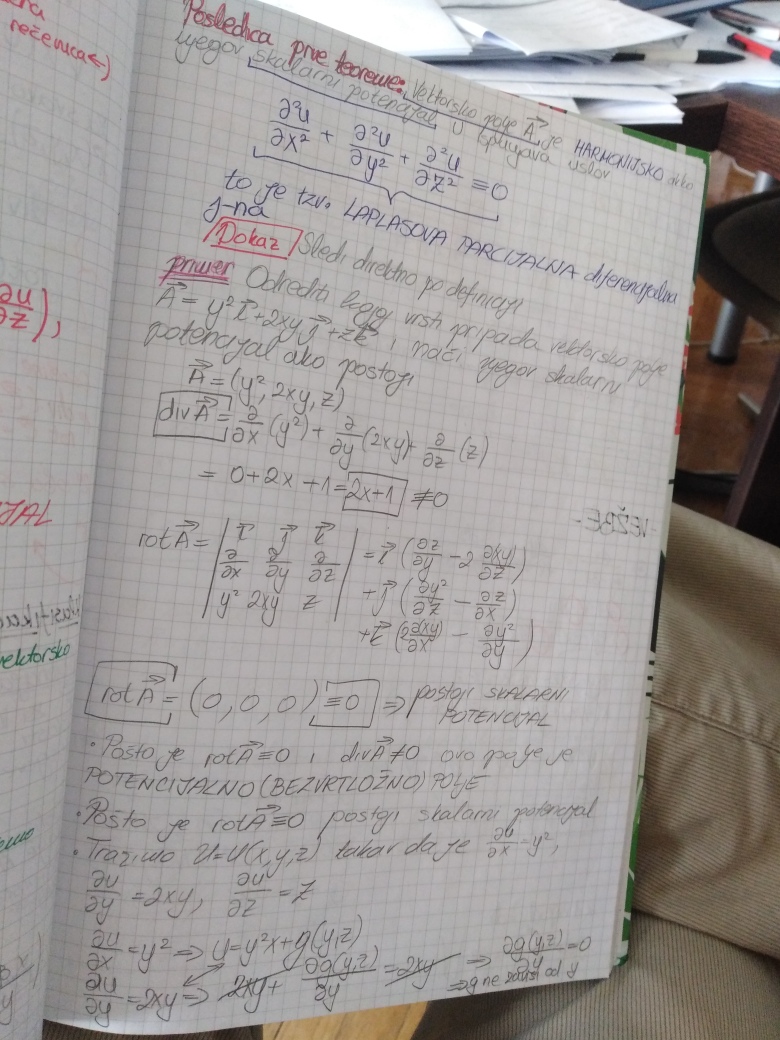 Posledica prve teoreme: Vektorsko polje A⃗ je HARMONIJSKO akko
njegov skalarni potencijal U ispunjava uslov
∂²U/∂x² + ∂²U/∂y² + ∂²U/∂z² ≡ 0
to je tzv. LAPLASOVA PARCIJALNA diferencijalna
j-na
Dokaz Sledi direktno po definiciji
primer Odrediti kojoj vrsti pripada vektorsko polje
A⃗ = y²i⃗ + 2xyj⃗ + zk⃗ i naći njegov skalarni
potencijal ako postoji
A⃗ = (y², 2xy, z)
divA⃗ = ∂/∂x (y²) + ∂/∂y (2xy) + ∂/∂z (z)
= 0+2x+1 = 2x+1 ≢ 0
rotA⃗ = | i⃗ j⃗ k⃗ | = i⃗ (∂z/∂y − 2 ∂(xy)/∂z)
| ∂/∂x ∂/∂y ∂/∂z | + j⃗ (∂y²/∂z − ∂z/∂x)
| y² 2xy z | + k⃗ (2∂(xy)/∂x − ∂y²/∂y)
rotA⃗ = (0, 0, 0) ≡ 0 ⇒ postoji SKALARNI
POTENCIJAL
• Pošto je rotA⃗ ≡ 0 i divA⃗ ≠ 0 ovo polje je
POTENCIJALNO (BEZVRTLOŽNO) POLJE
• Pošto je rotA⃗ ≡ 0 postoji skalarni potencijal
• Tražimo U=U(x,y,z) takav da je ∂u/∂x = y²,
∂u/∂y = 2xy, ∂u/∂z = z
∂u/∂x = y² ⇒ u = y²x + g(y,z)
∂u/∂y = 2xy ⇒ 2xy + ∂g(y,z)/∂y = 2xy ⇒ ∂g(y,z)/∂y = 0
⇒ g ne zavisi od y
rečenica
∂u/∂z),
JAL
klasifika
vektorsko
VEŽBE-